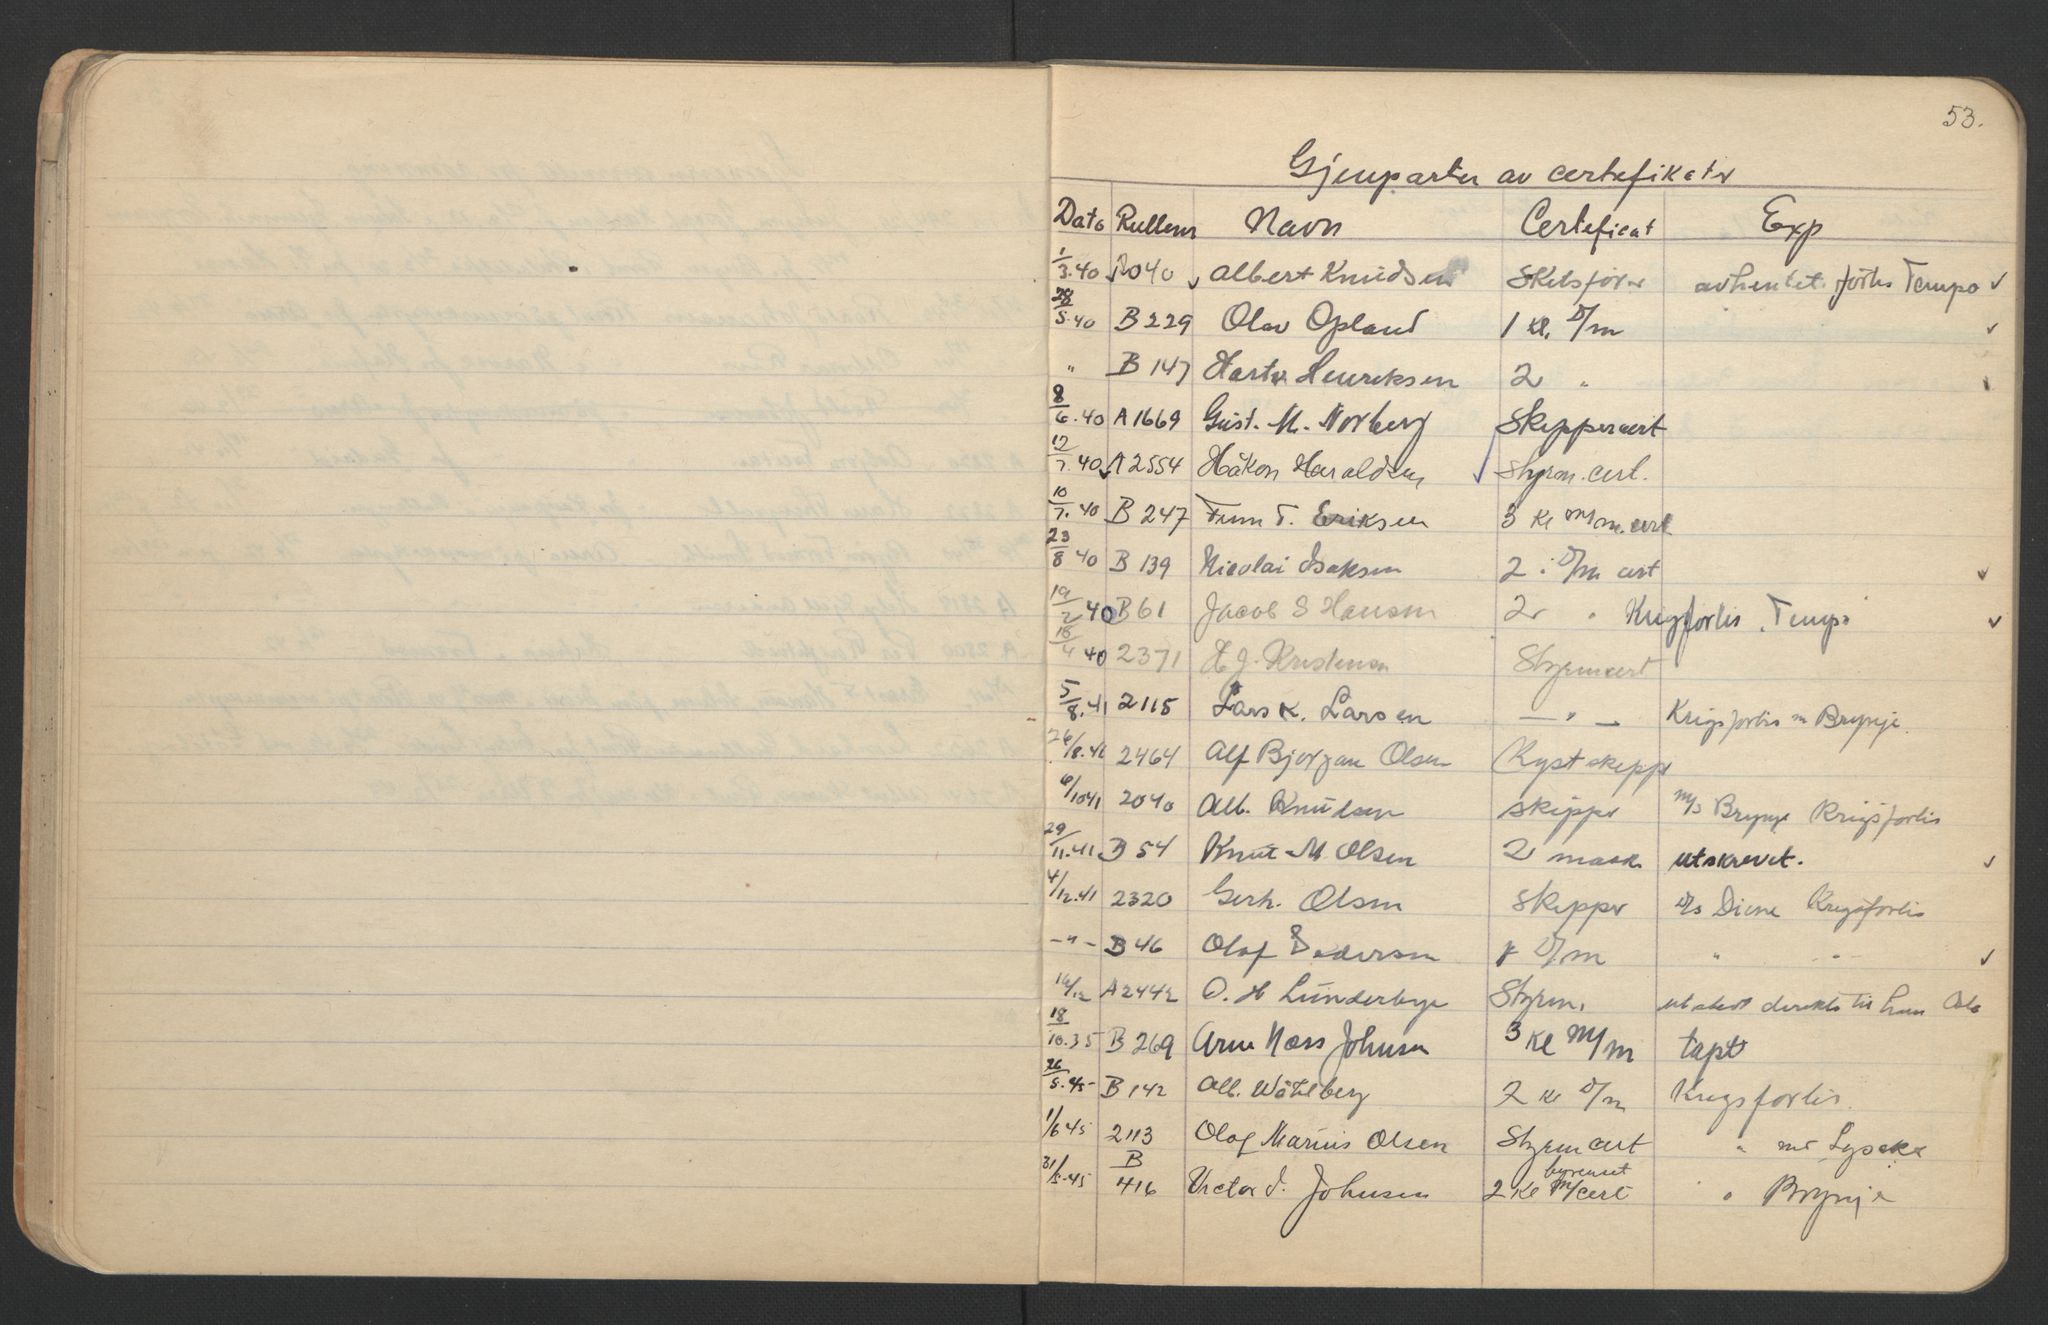 53.
Gjenparter av certefikater
Dato Rullenr Navn Certeficat Exp
1/3.40 2040 Albert Knudsen Skibsfører avhentet forlis Tempo ✓
28/5.40 B 229 Olav Opland 1 Kl. D/m ✓
" B 147 Henriksen 2 "
8/6.40 A 1669 Gust. M. Norberg Skippercert
12/7.40 A 2554 Håkon Haraldsen Styrm. cert.
10/7.40 B 247 Finn T. Eriksen 3 Kl m/m. cert
23/8 40 B 139 Nicolai Isaksen 2 " D/m cert ✓
19/2 40 B 61 Jacob S Hansen 2 " Krigsforlis Tempo ✓
16/4 40 2371 H J. Kristensen Styrmcert
5/8.41 2115 Lars K. Larsen — " — Krigsforlis m Brynje.
26/8.41 2464 Alf Bjorgan Olsen Kystskipper
6/10 41 2040 Alb. Knudsen skipper m/s Brynje Krigsforlis
29/11.41 B 54 Knut M. Olsen 2 mask utskrevet. ✓
4/12.41 2320 Gerh. Olsen Skipper Krigsforlis
— " — B 46 Olaf Pedersen D/m " " ✓
16/12 A 2442 O. H Lunderbye Styrm. utstedt direkte til ham Oslo
18/10.35 B 269 Arne Næss Johnsen 3 Kl M/m tapt
26/5.45 B 142 Alb. Wåhlberg 2 Kl D/m Krigsforlis.
1/6 45 2113 Olaf Marius Olsen Styrm cert " Lysaker
31/5.45 B 416 Victor J. Johnsen 2 Kl begrenset m/cert " Brynje